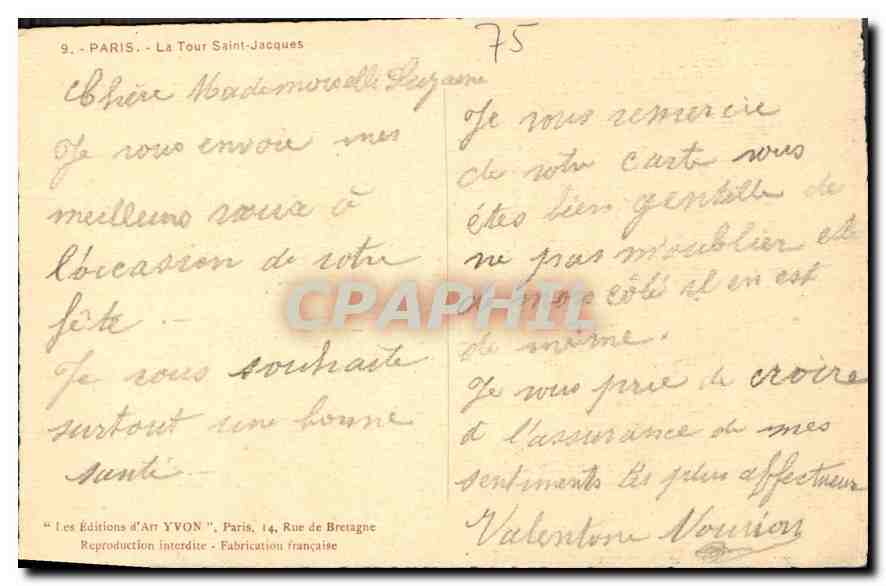 9. - PARIS. - La Tour Saint-Jacques
75
Chère Mademoiselle Suzanne
Je vous envoie mes
meilleurs vœux à
l'occasion de votre
fête.
Je vous souhaite
surtout une bonne
santé
Je vous remercie
de votre carte vous
êtes bien gentille de
ne pas m'oublier et
de mon côté il en est
de même.
Je vous prie de croire
à l'assurance de mes
sentiments les plus affectueux
Valentone
"Les Éditions d'Art YVON", Paris, 14, Rue de Bretagne
Reproduction interdite - Fabrication française
CPAPHIL